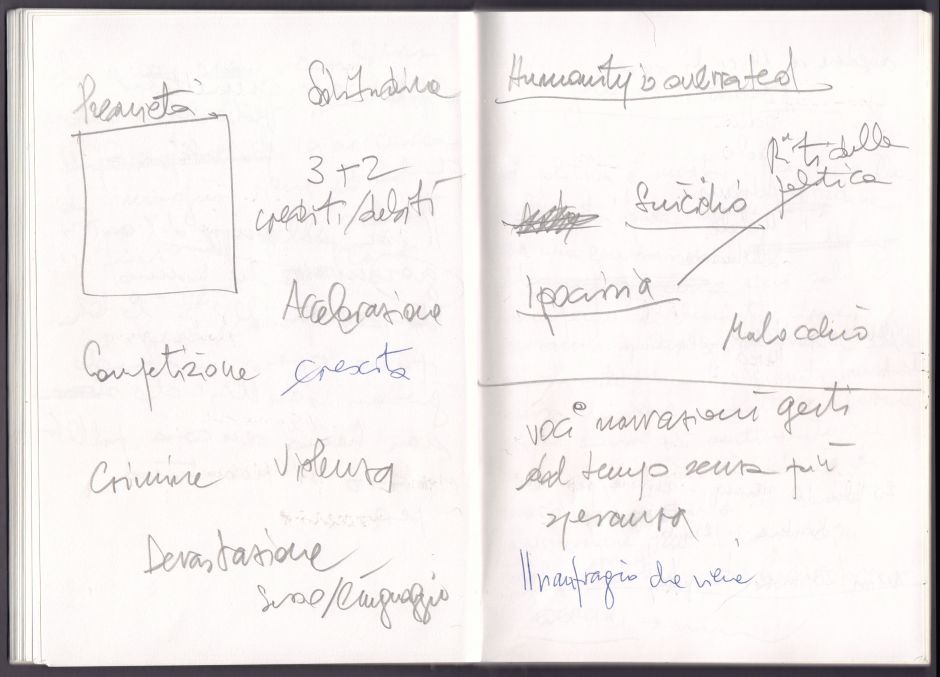 Precarietà
Solitudine
3+2
crediti/debiti
Accelerazione
Competizione
crescita
Crimine
Violenza
Devastazione
/linguaggio
Humanity is overrated
Riti della
politica
Suicidio
Ipocrisia
Malocchio
voci narrazioni gesti
dal tempo senza più
speranza
Il naufragio che viene